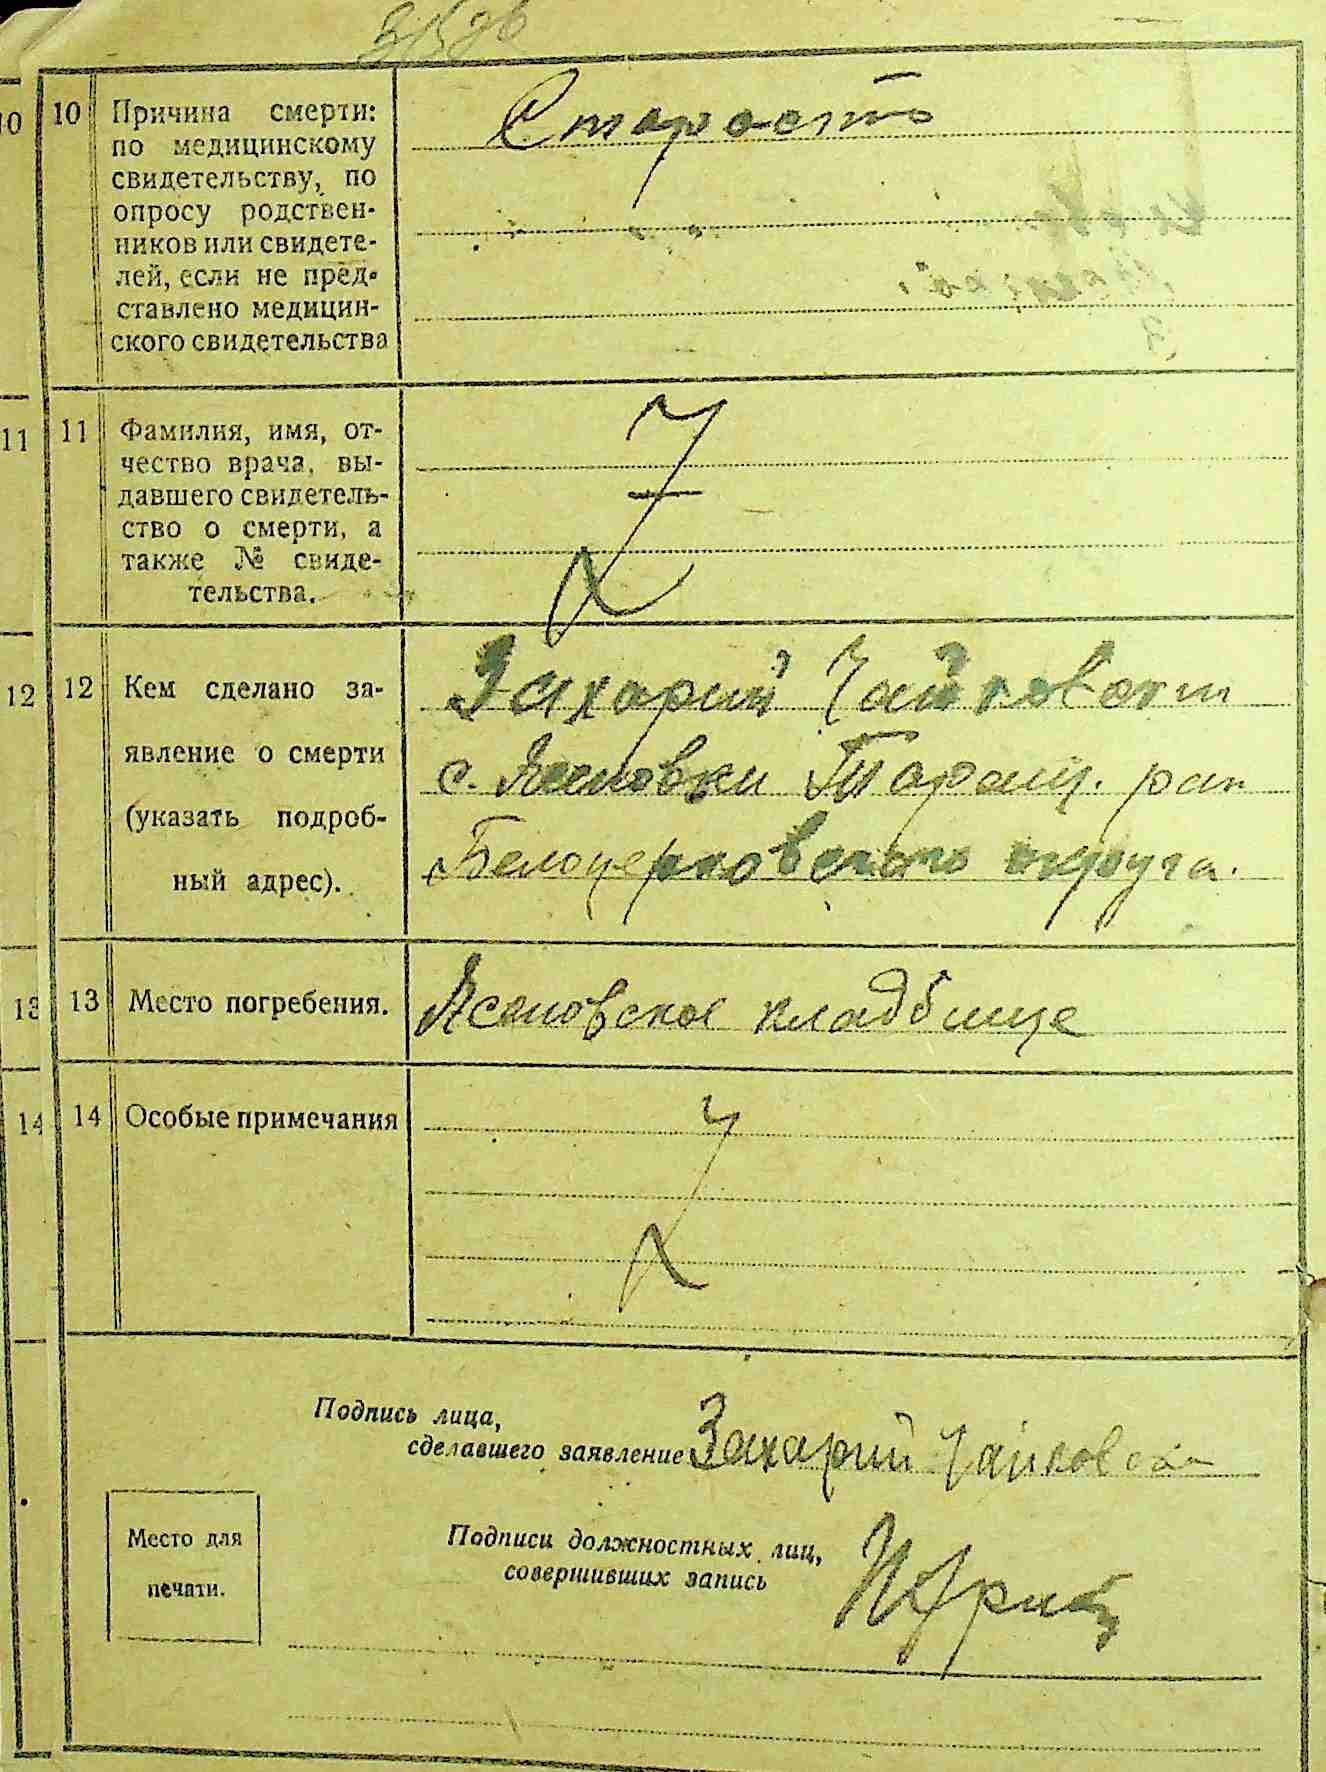 10
10
Причина смерти:
по медицинскому
свидетельству, по
опросу родствен-
ников или свидете-
лей, если не пред-
ставлено медицин-
ского свидетельства
Старость
11
11
Фамилия, имя, от-
чество врача, вы-
давшего свидетель-
ство о смерти, а
также № свиде-
тельства.
12
12
Кем сделано за-
явление о смерти
(указать подроб-
ный адрес).
Захарий Чайковский
с. Ясеновки Таращ. рай
Белоцерковского округа.
13
13
Место погребения.
Ясеновское кладбище
14
14
Особые примечания
Подпись лица,
сделавшего заявление Захарий Чайковски
Место для
печати.
Подписи должностных лиц,
совершивших запись